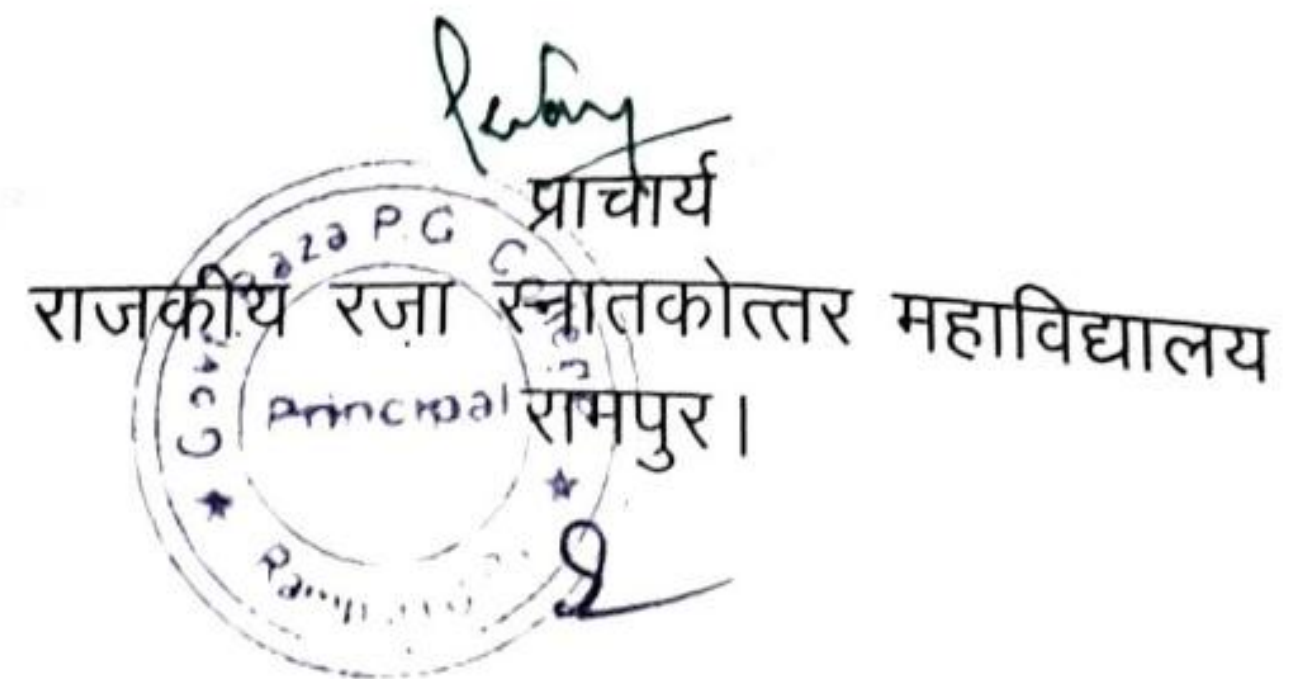 प्राचार्य
राजकीय रज़ा स्नातकोत्तर महाविद्यालय
रामपुर।
Raza P.G College
Principal